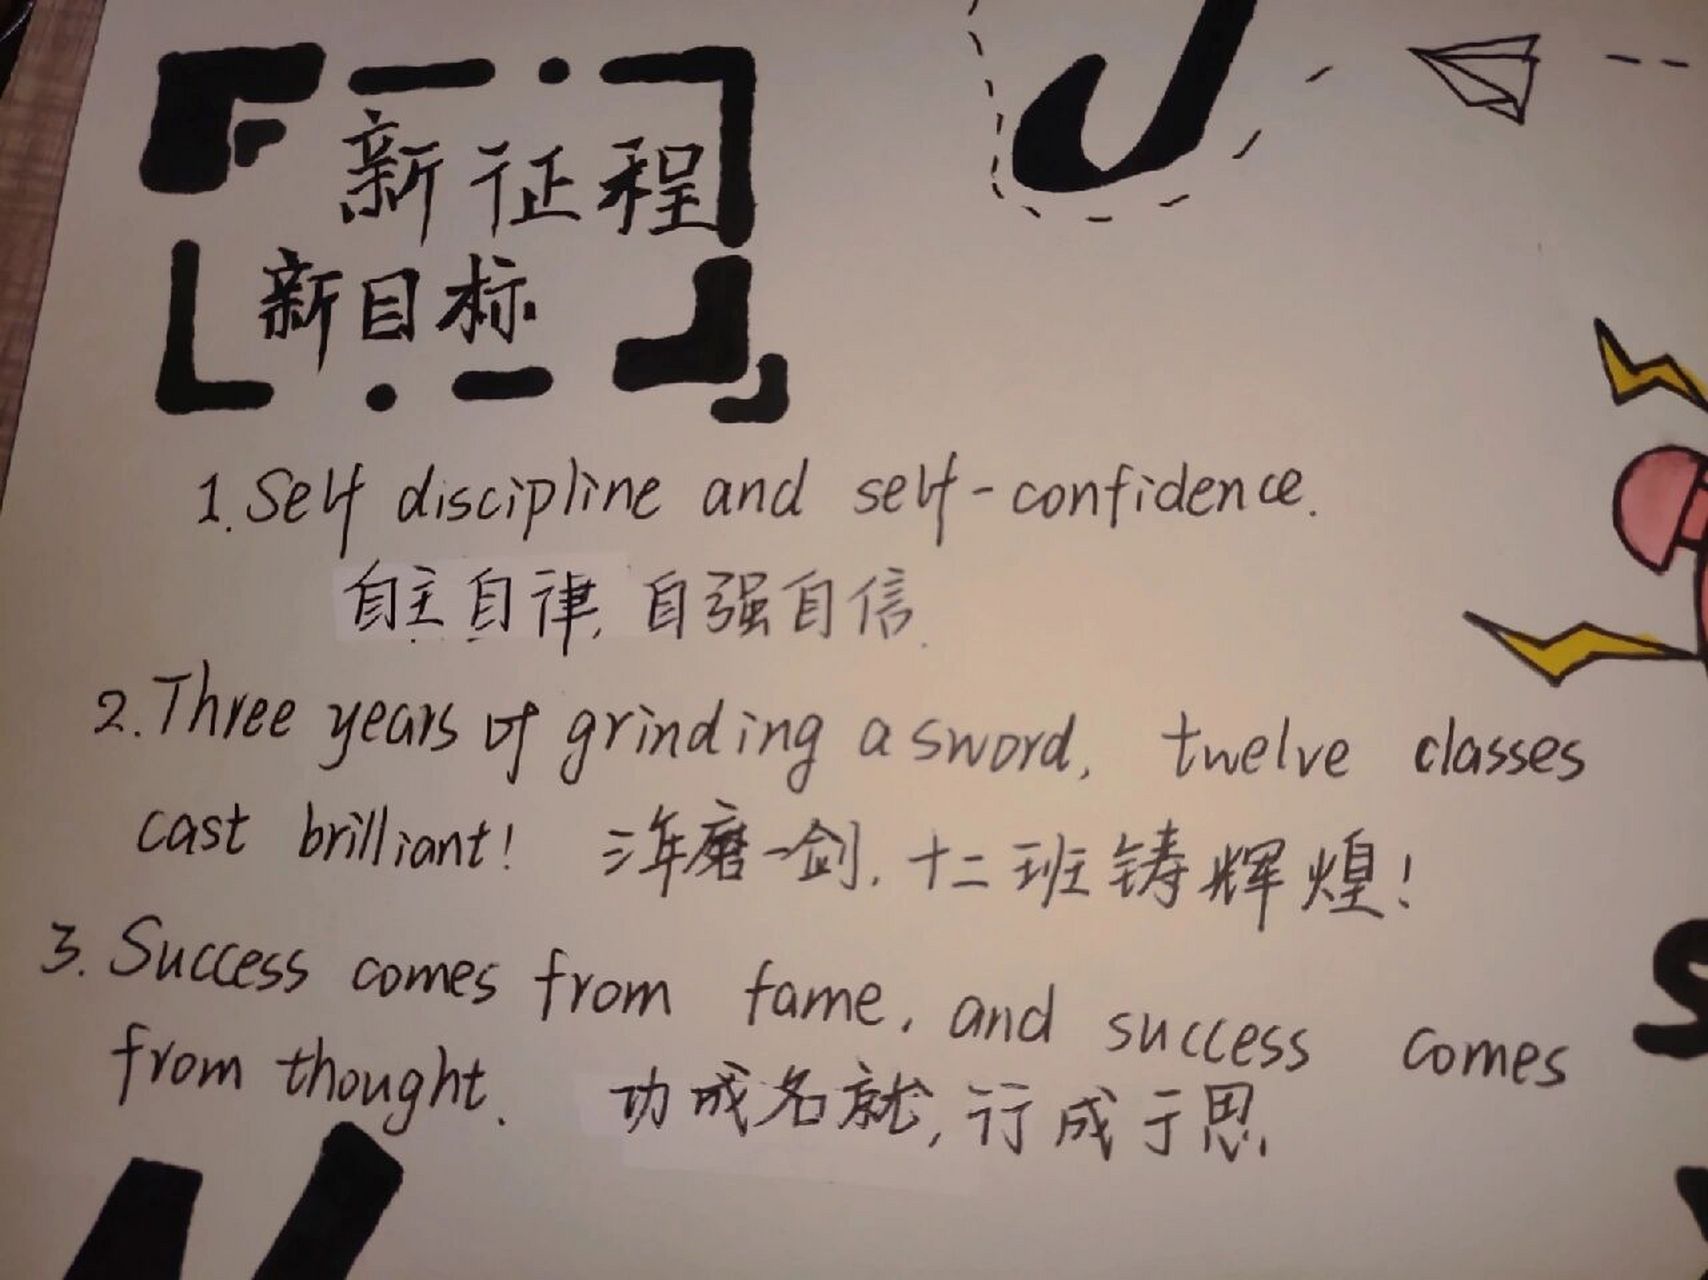 新征程
新目标
1. Self discipline and self-confidence.
自主自律, 自强自信.
2. Three years of grinding a sword, twelve classes
cast brilliant! 三年磨一剑, 十二班铸辉煌!
3. Success comes from fame, and success comes
from thought. 功成名就, 行成于思.